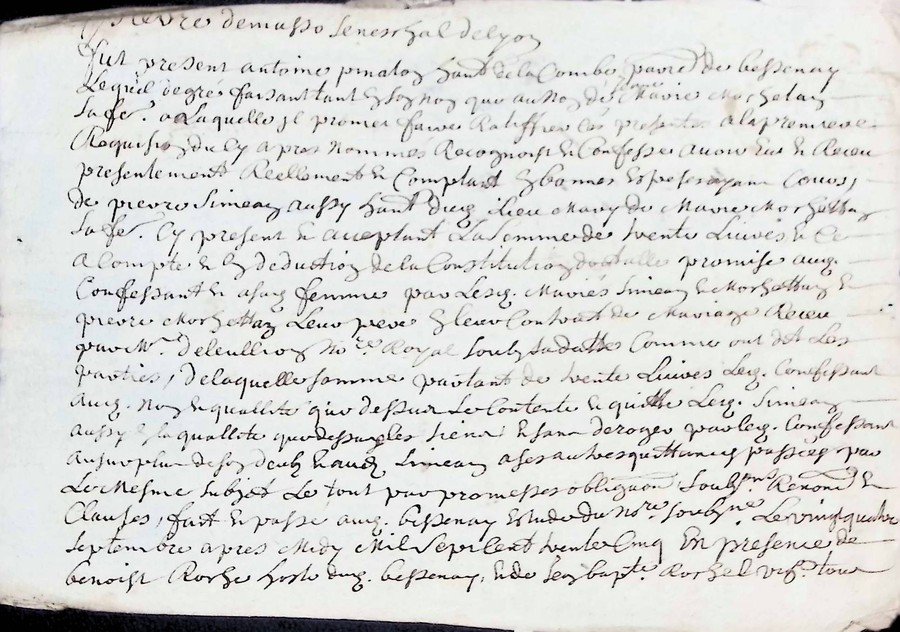 demasso seneschal de lyon
Fut present antoine pinaton habt. de la Combe paroisse de bessenay
Lequel de gre faisant tant en son nom que au nom de Marie Mochetan
sa fe. a Laquelle il promet faire Ratiffier ces presentes a la premiere
Requisition du cy apres nommes Recognoist et Confesse avoir eu et Receu
presentement Reellement et Comptant en bonnes especes ayant Cours,
de pierre Simean aussy habt. dud. Lieu Mary de Marie Morhettan
sa fe. Cy present et acceptant La somme de trente Livres et Ce
a Compte et en deduction de la Constitution promise aud.
Confessant et a sad. femme par Lesd. Maries Simean et Morhettan et
pierre Morhettan Leur pere en leur Contrat de Mariage Receu
par Me. deleullion No.re Royal soubz sa datte Comme ont dit Les
parties, de laquelle somme partant de trente Livres Led. Confessant
aud. nom et quallite que dessus se Contente et quitte Led. Simean
aussy en la quallite que dessus les siens et sans deroger par led. Confessant
au surplus de son deub et aud. Simean a ses autres quittances passees par
Le Mesme subjet Le tout par promesses obligaon. soubmi. Renon. et
Clauses, fait et passe aud. bessenay estude du no.re soubz.ne Le vingt quatre
septembre apres Midy Mil sept Cent trente Cinq En presence de
benoist Roche hoste dud. bessenay, et de Jean bapte. Rochel tous